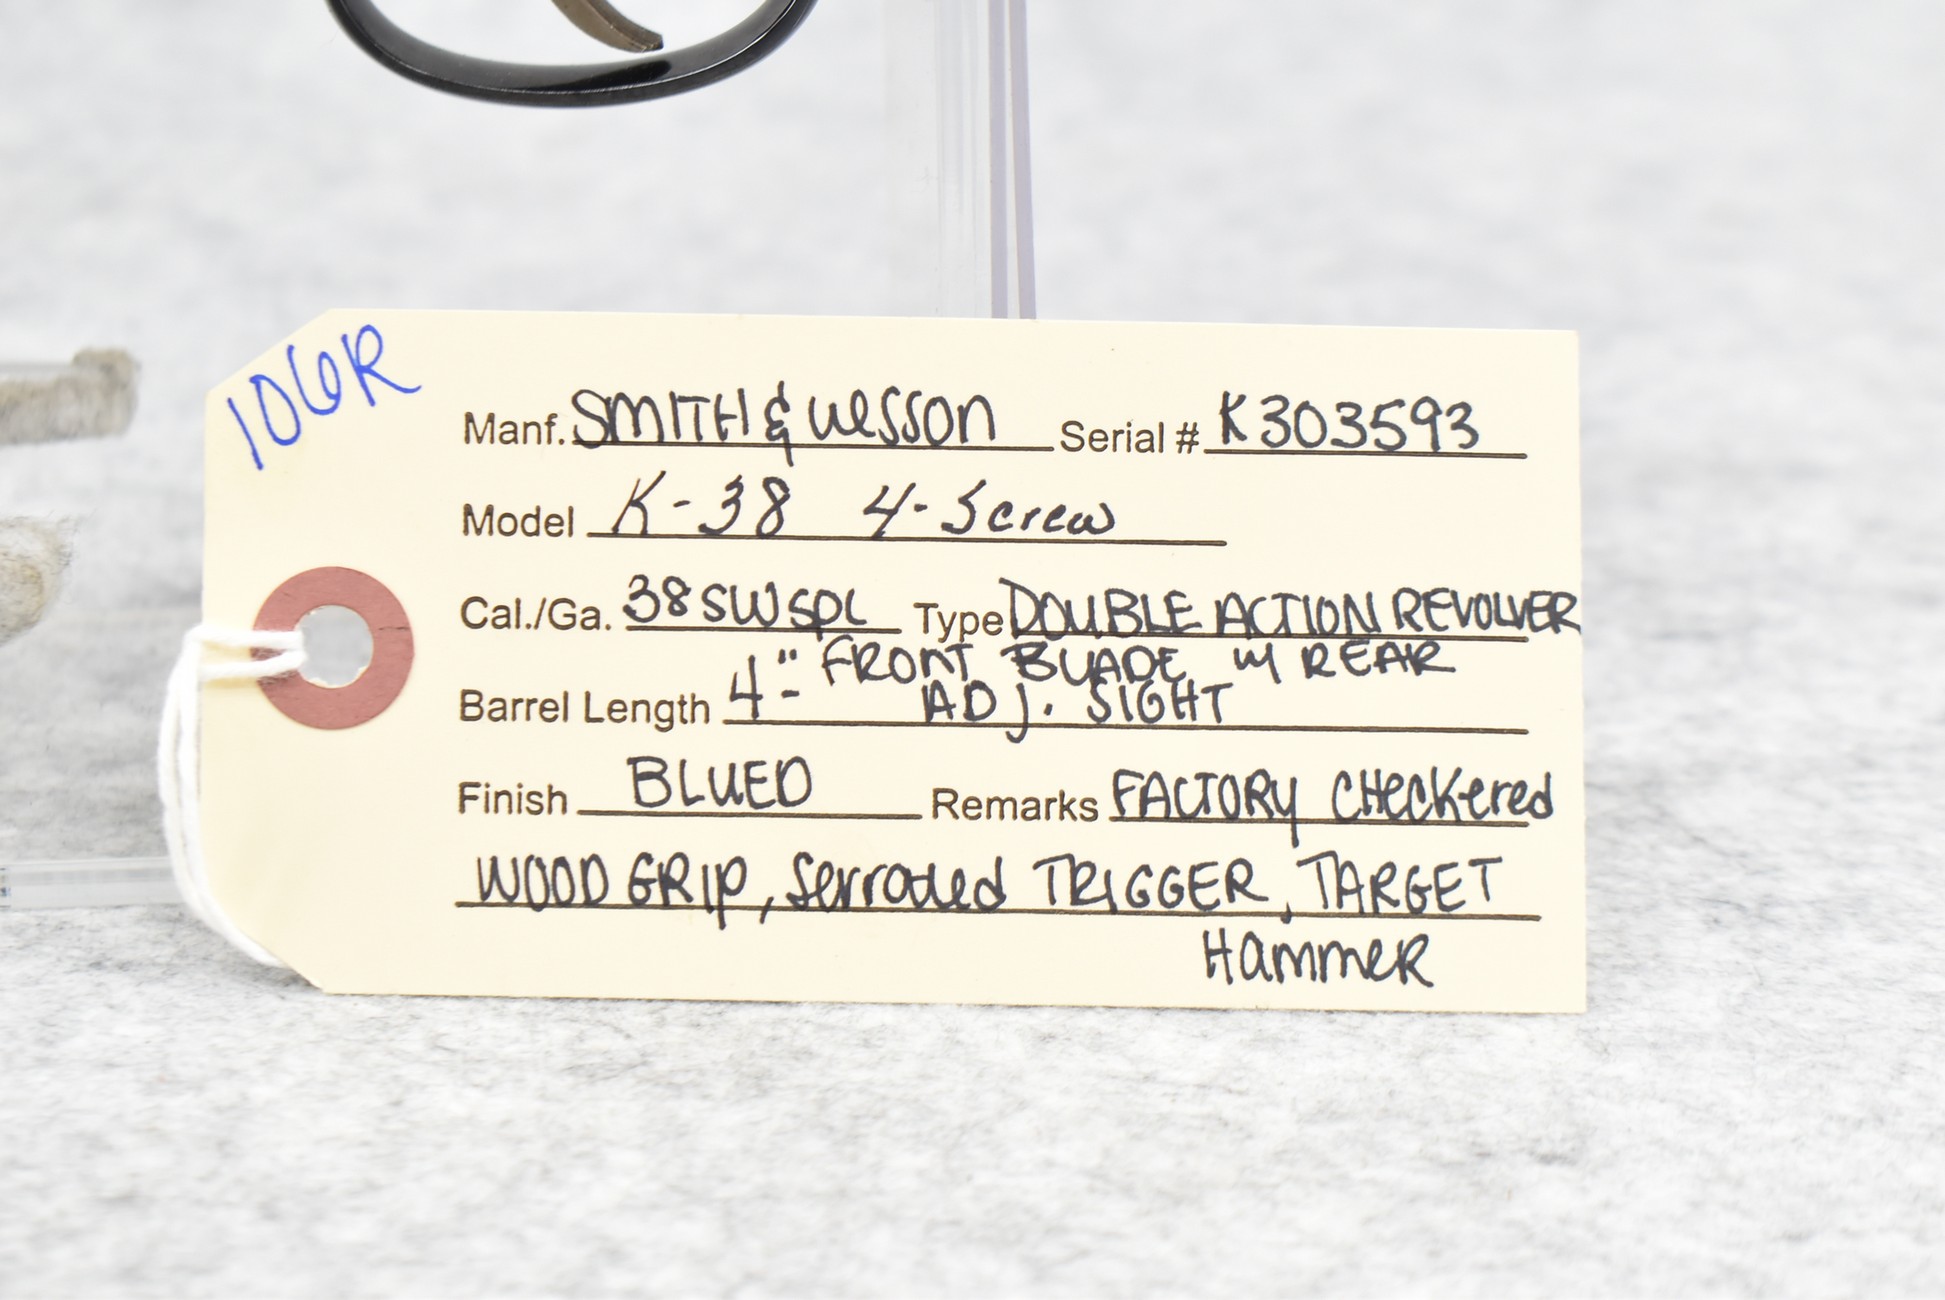 106R
Manf. SMITH & WESSON Serial # K303593
Model K-38 4-Screw
Cal./Ga. 38SWSPL Type DOUBLE ACTION REVOLVER
Barrel Length 4" - FRONT BLADE w/ REAR
ADJ. SIGHT
Finish BLUED Remarks FACTORY CHECKered
WOOD GRIP, Serrated TRIGGER, TARGET
HammER